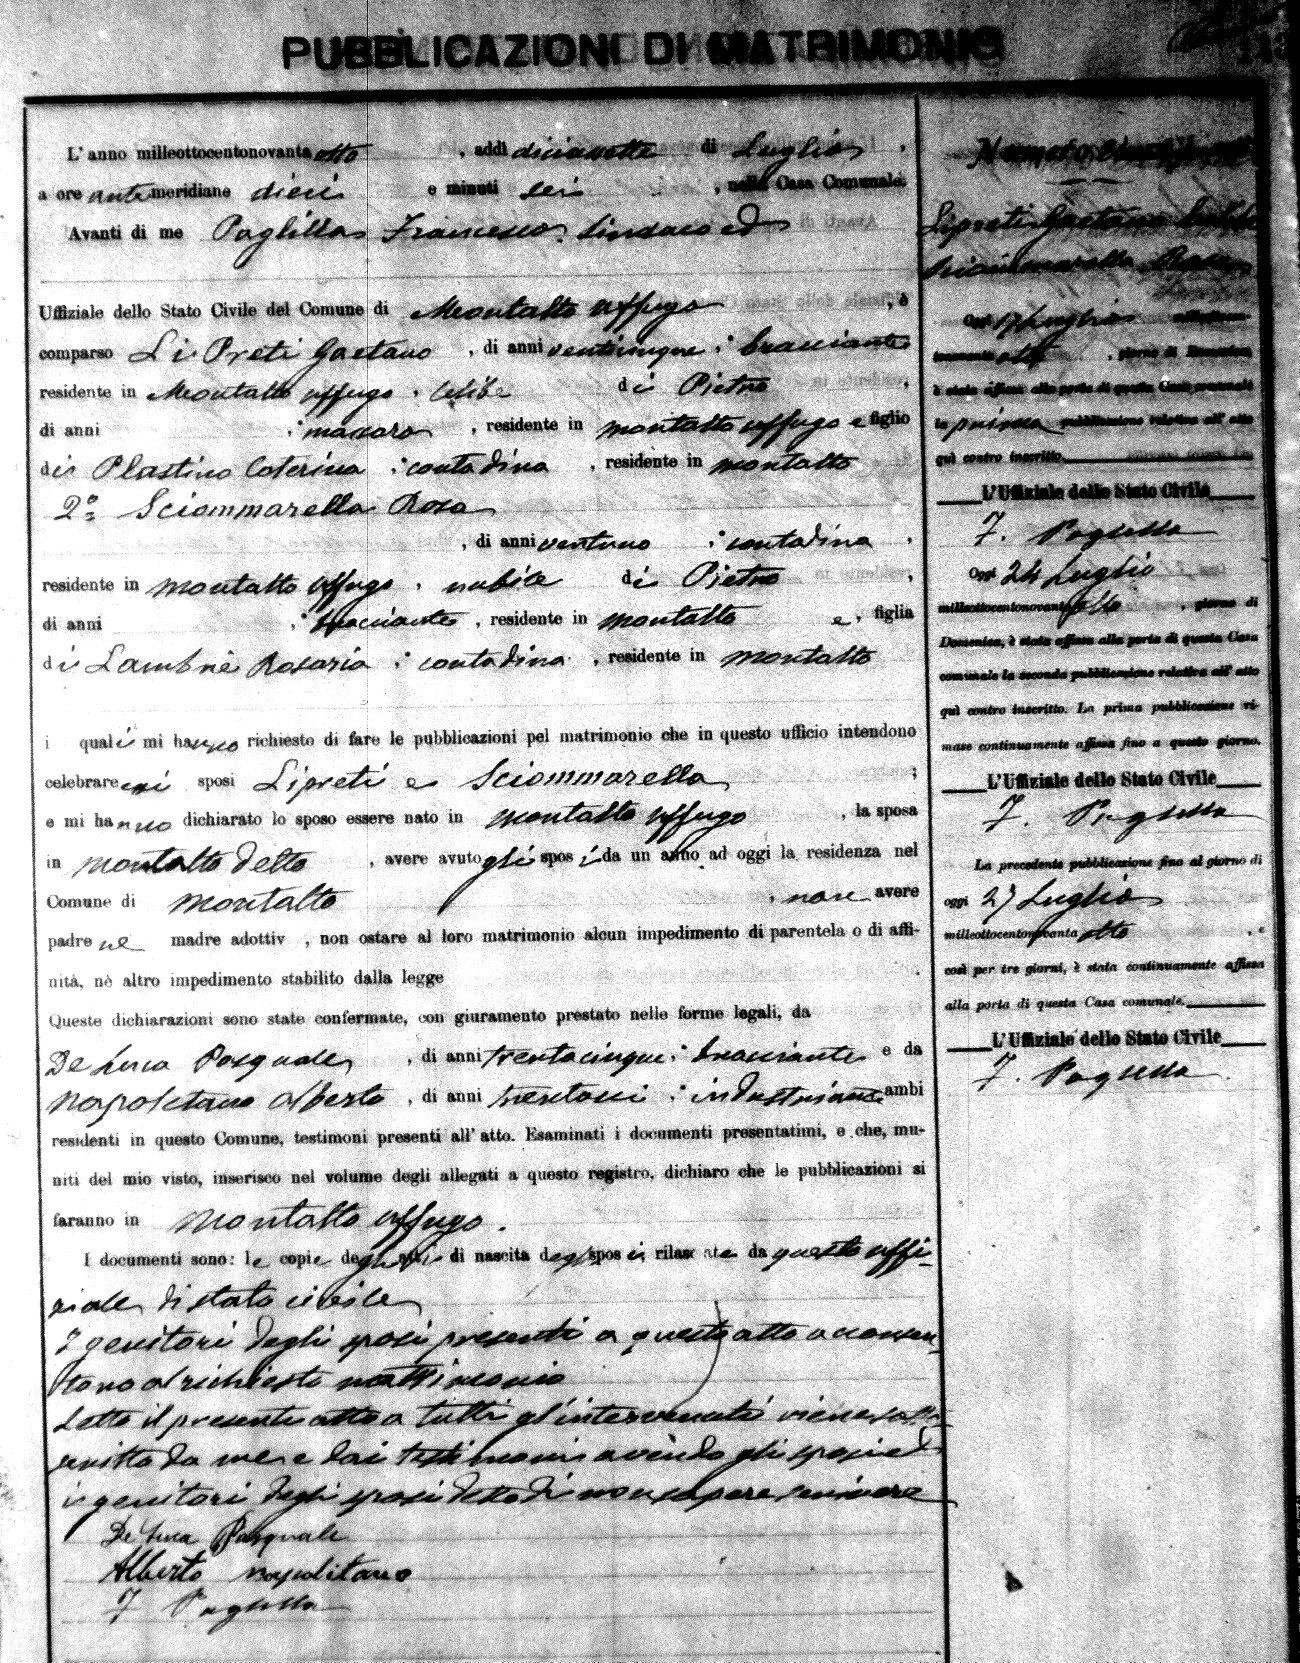 PUBBLICAZIONI DI MATRIMONIO
L'anno milleottocentonovanta otto , addì diciasette di Luglio ,
a ore ante meridiane dieci e minuti sei , nella Casa Comunale.
Avanti di me Paglilla Francesco Sindaco ed
Uffiziale dello Stato Civile del Comune di Montalto Uffugo , è
comparso Li Preti Gaetano , di anni venticinque , bracciante
residente in Montalto Uffugo , celibe di Pietro ,
di anni , massaro , residente in Montalto Uffugo e figlio
di Plastino Caterina , contadina , residente in Montalto
2° Sciammarella Rosa
, di anni ventuno , contadina ,
residente in Montalto Uffugo , nubile di Pietro ,
di anni , bracciante , residente in Montalto e , figlia
di Lambrè Rosaria , contadina , residente in Montalto
i quali mi hanno richiesto di fare le pubblicazioni pel matrimonio che in questo ufficio intendono
celebrare essi sposi Lipreti e Sciammarella ;
e mi hanno dichiarato lo sposo essere nato in Montalto Uffugo , la sposa
in Montalto detto , avere avuto gli sposi da un anno ad oggi la residenza nel
Comune di Montalto , non avere
padre ne madre adottiv , non ostare al loro matrimonio alcun impedimento di parentela o di affi-
nità, nè altro impedimento stabilito dalla legge .
Queste dichiarazioni sono state confermate, con giuramento prestato nelle forme legali, da
De Luca Pasquale , di anni trentacinque , bracciante e da
Napolitano Alberto , di anni trentasei , industriante ambi
residenti in questo Comune, testimoni presenti all'atto. Esaminati i documenti presentatimi, e che, mu-
niti del mio visto, inserisco nel volume degli allegati a questo registro, dichiaro che le pubblicazioni si
faranno in Montalto Uffugo .
I documenti sono: le copie degli atti di nascita degli sposi rilasciate da questo uffi-
ziale di stato civile
I genitori degli sposi presenti a questo atto acconsen
tono al richiesto matrimonio
Letto il presente atto a tutti gl'intervenuti viene sotto
scritto da me e dai testimoni avendo gli sposi ed
i genitori degli sposi detto di non sapere scrivere
De Luca Pasquale
Alberto Napolitano
F Paglilla
Lipreti Gaetano
Sciammarella Rosa
Oggi 17 Luglio milleotto-
centonovant otto , giorno di Domenica,
è stata affissa alla porta di questa Casa comunale
la prima pubblicazione relativa all'atto
quì contro inscritto.
L'Uffiziale dello Stato Civile
F. Paglilla
Oggi 24 Luglio
milleottocentonovant otto , giorno di
Domenica, è stata affissa alla porta di questa Casa
comunale la seconda pubblicazione relativa all'atto
quì contro inscritto. La prima pubblicazione ri-
mase continuamente affissa fino a questo giorno.
L'Uffiziale dello Stato Civile
F. Paglilla
La precedente pubblicazione fino al giorno di
oggi 27 Luglio
milleottocentonovanta otto , e
così per tre giorni, è stata continuamente affissa
alla porta di questa Casa comunale.
L'Uffiziale dello Stato Civile
F. Paglilla